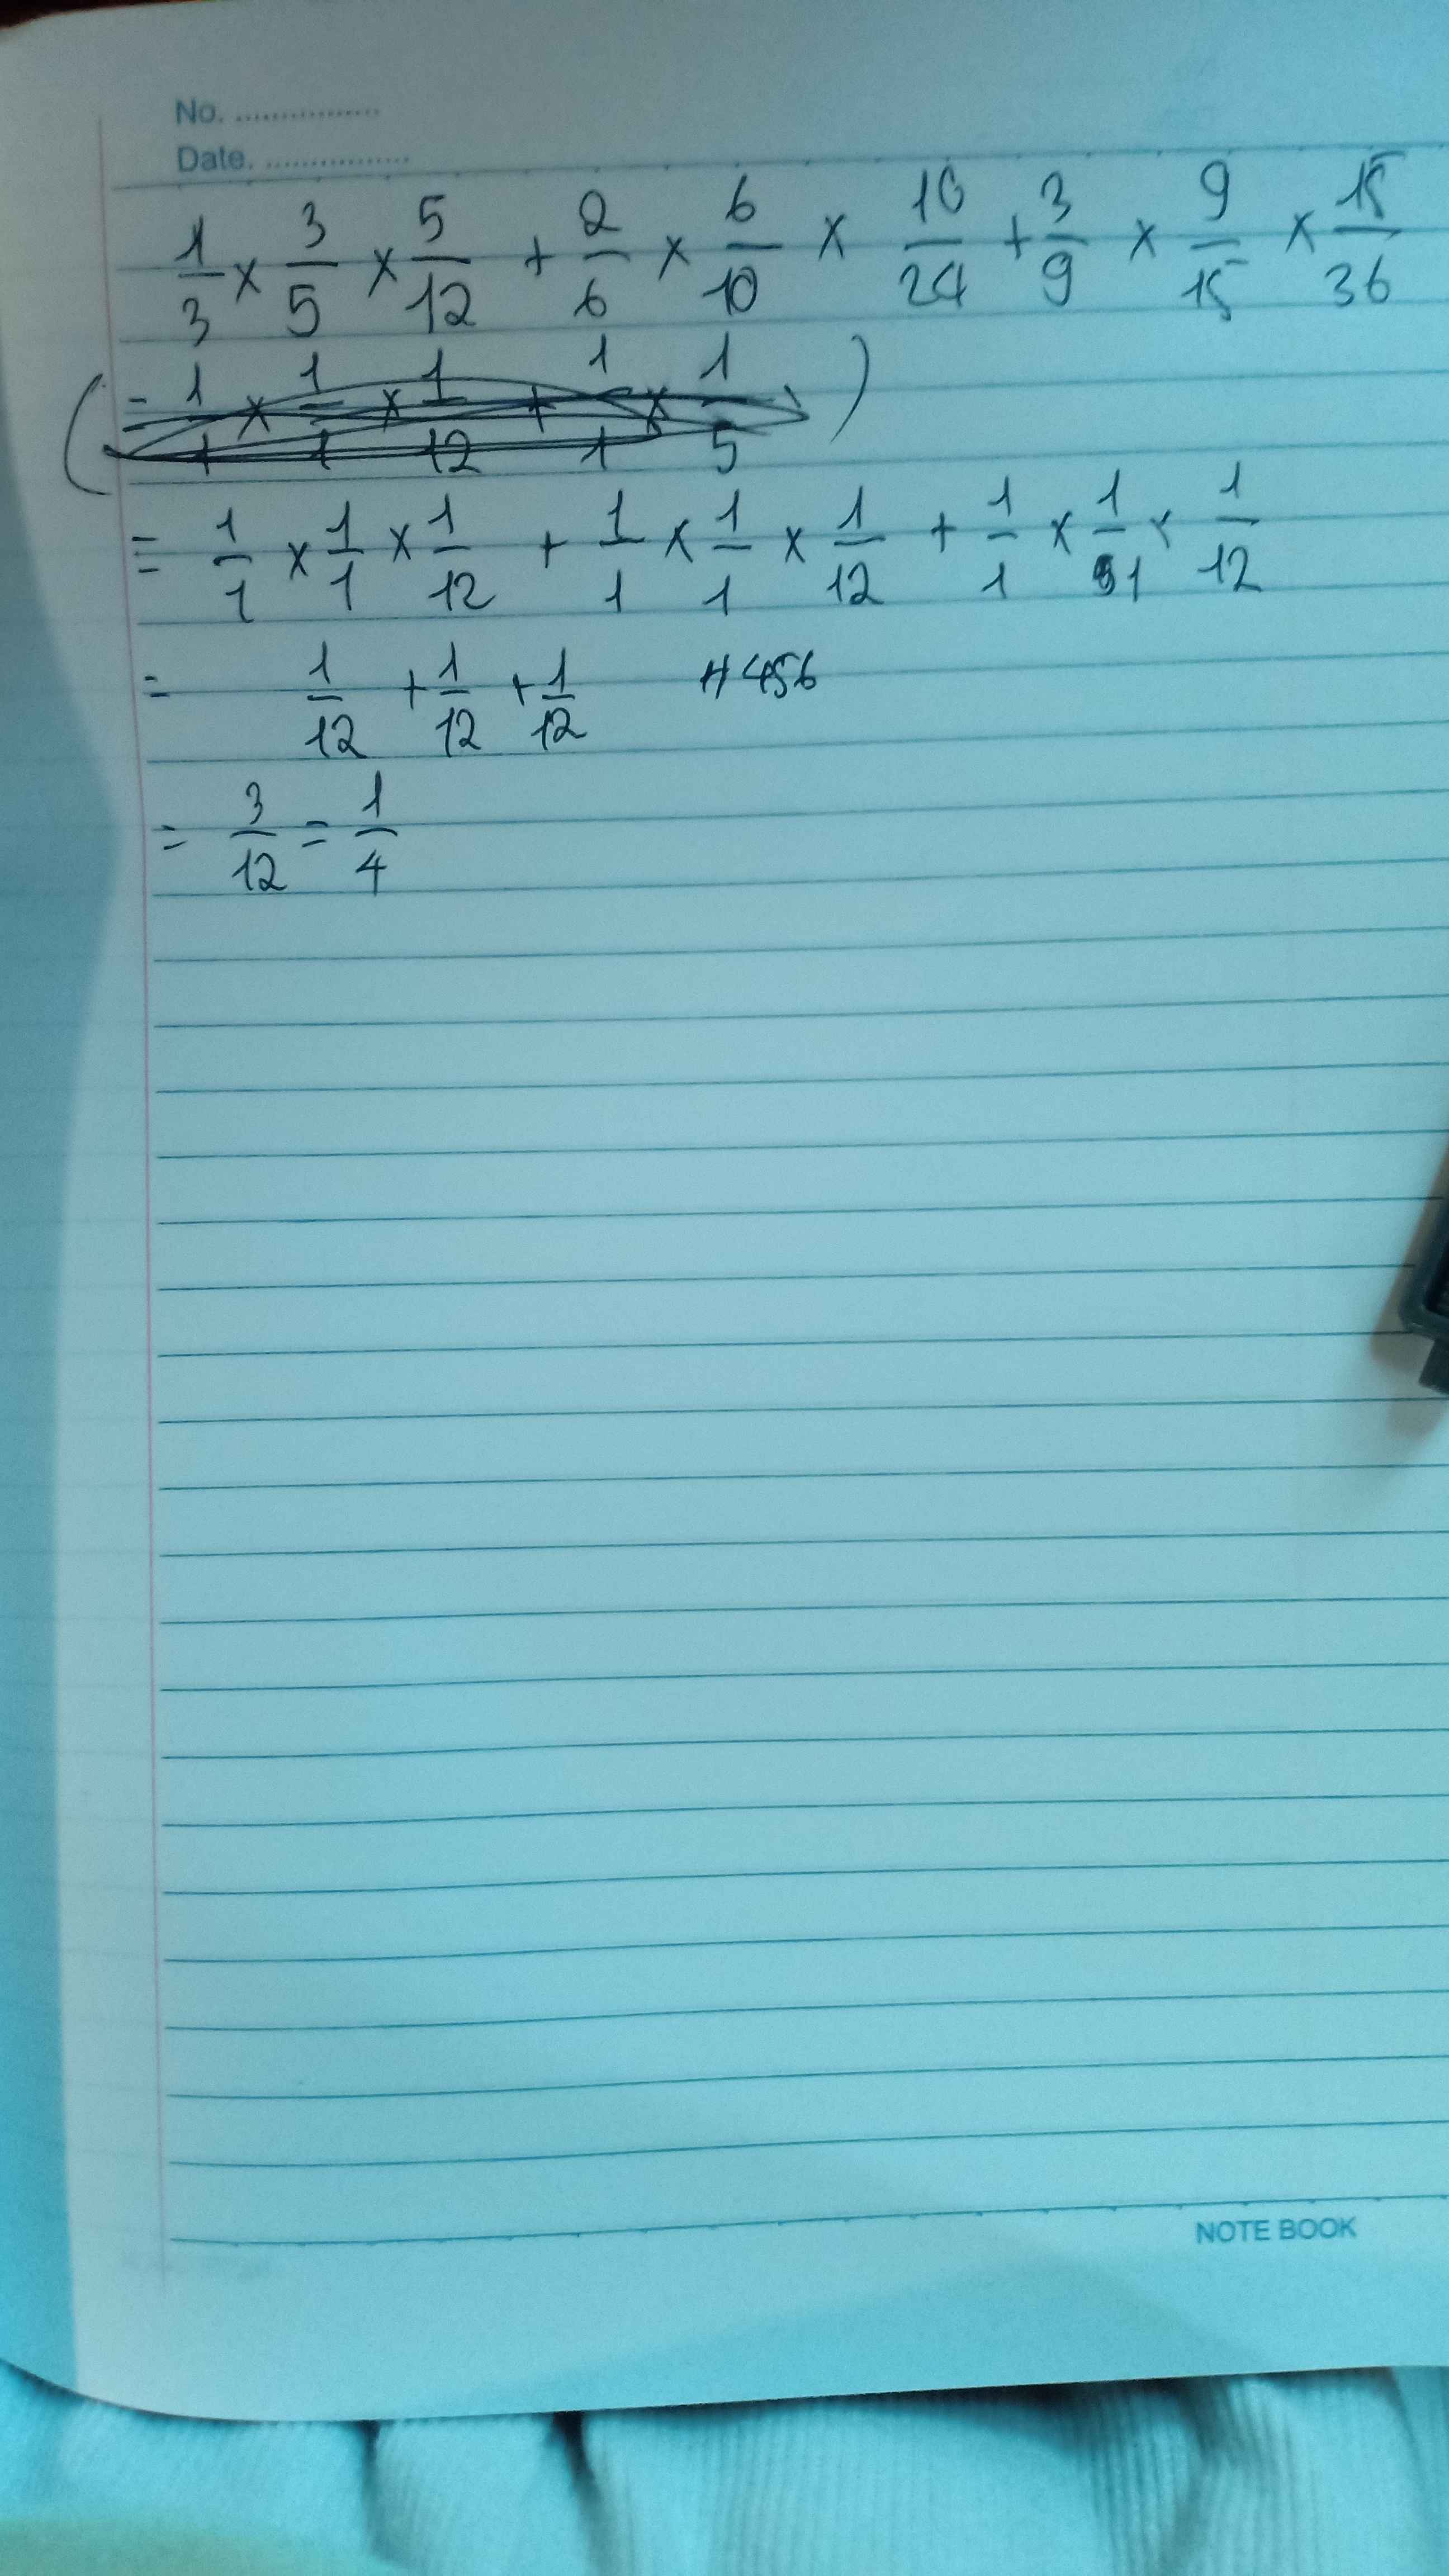 No. ................
Date. ................
1/3 × 3/5 × 5/12 + 2/6 × 6/10 × 10/24 + 3/9 × 9/15 × 15/36
(= 1/1 × 1/1 × 1/12 + 1/1 × 1/5)
= 1/1 × 1/1 × 1/12 + 1/1 × 1/1 × 1/12 + 1/1 × 1/1 × 1/12
= 1/12 + 1/12 + 1/12 #456
= 3/12 = 1/4
NOTE BOOK